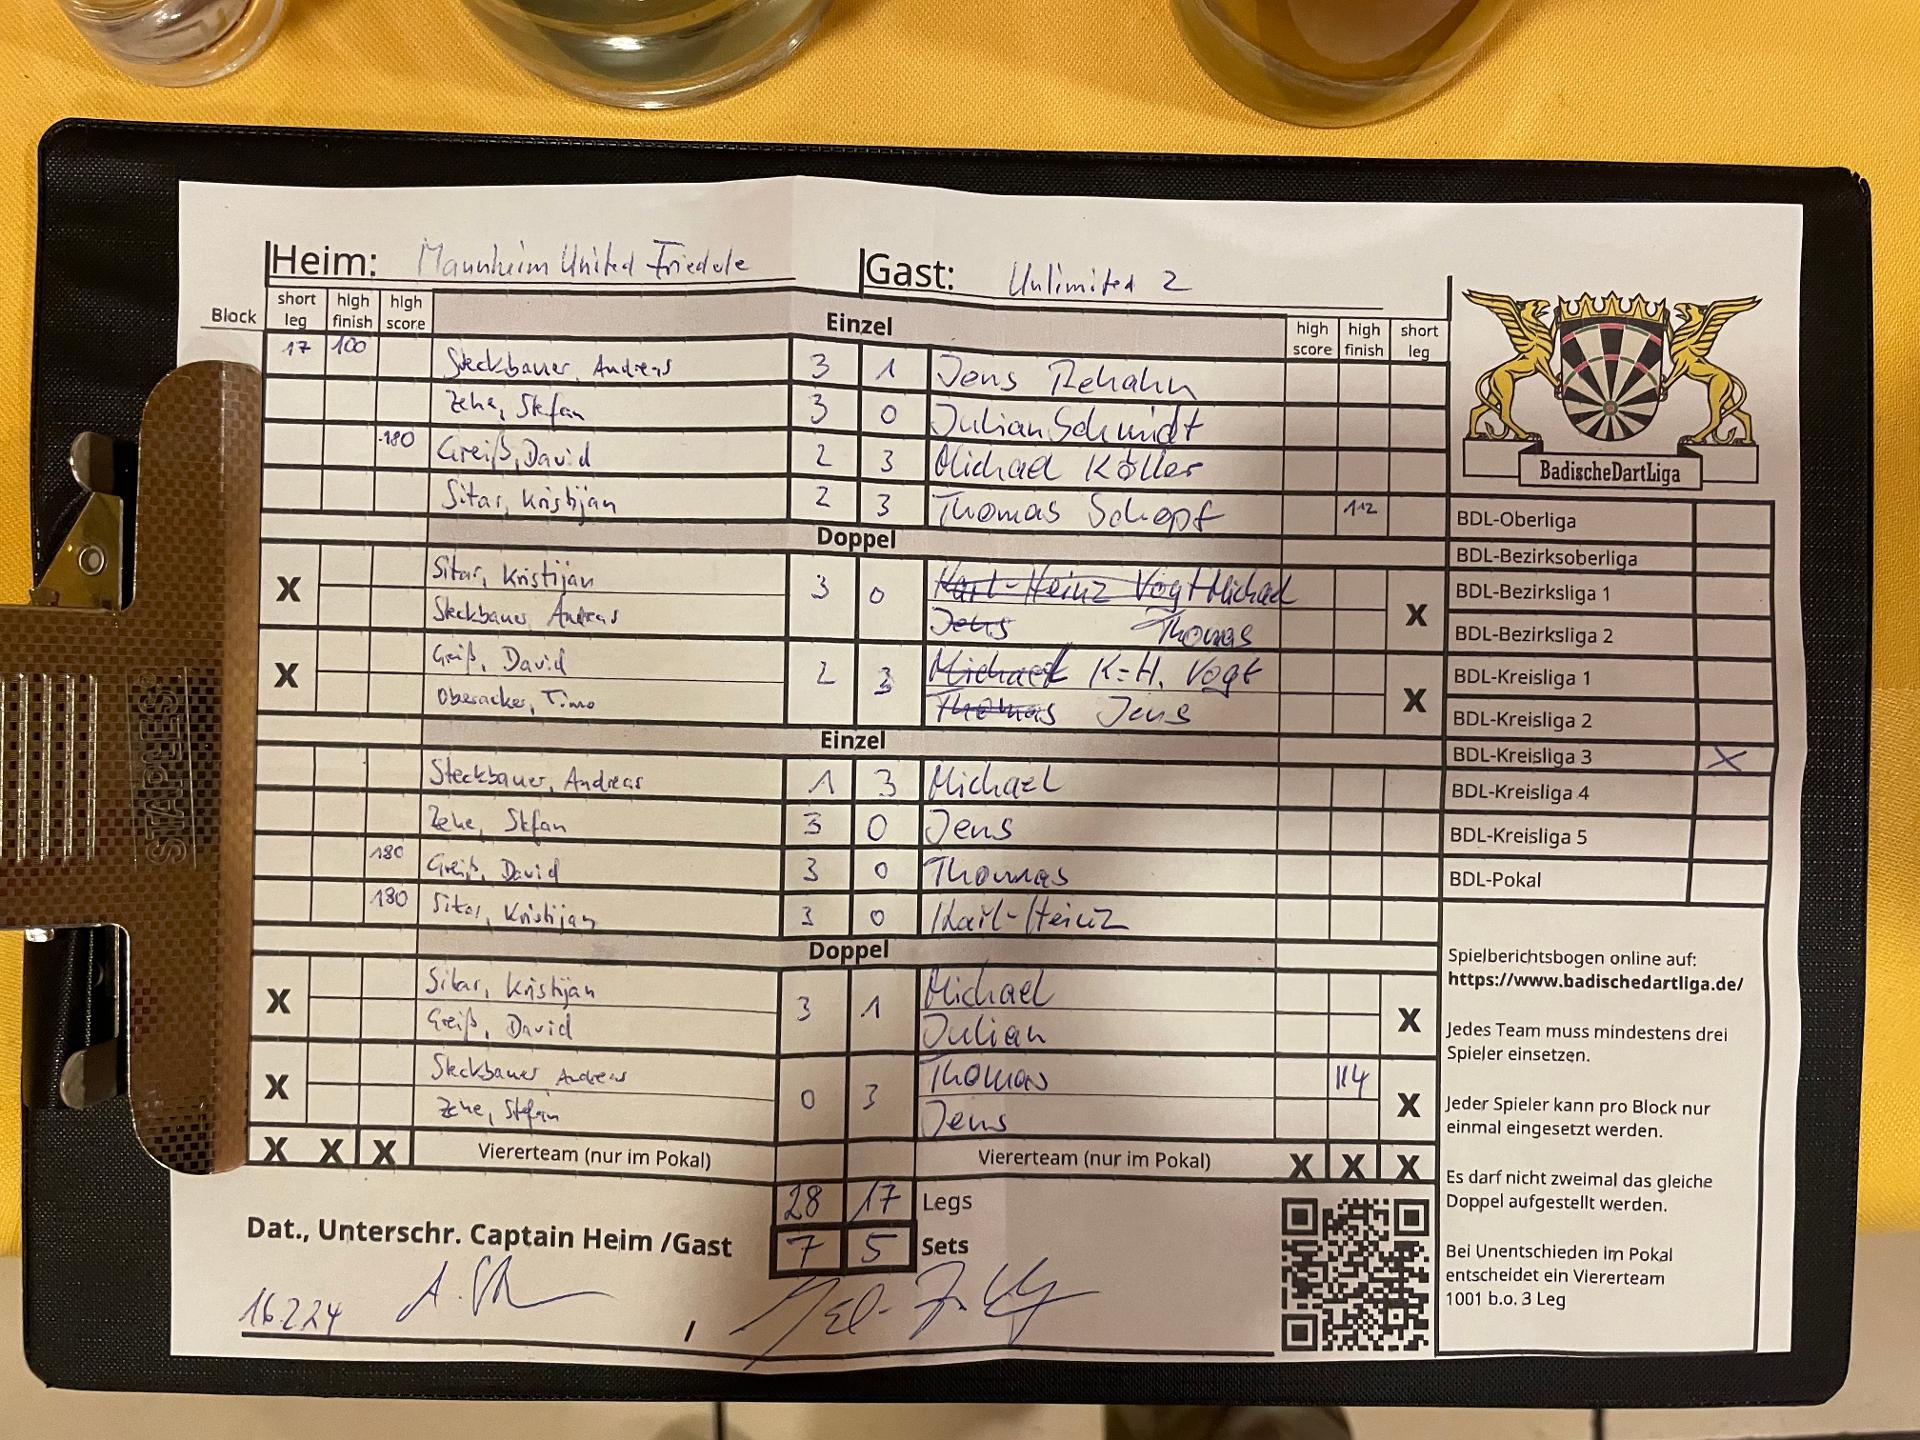 Heim: Mannheim United Friedele Gast: Unlimited 2
Block short leg high finish high score Einzel high score high finish short leg
17 100 Steckbauer, Andreas 3 1 Jens Rehahn
Zehe, Stefan 3 0 Julian Schmidt
180 Greiß, David 2 3 Michael Köller
Sitar, Kristijan 2 3 Thomas Schopf 112
Doppel
X Sitar, Kristijan 3 0 Karl-Heinz Vogt Michael X
Steckbauer Andreas Jens Thomas
X Greiß, David 2 3 Michael K-H. Vogt X
Oberacker, Timo Thomas Jens
Einzel
Steckbauer, Andreas 1 3 Michael
Zehe, Stefan 3 0 Jens
180 Greiß, David 3 0 Thomas
180 Sitar, Kristijan 3 0 Karl-Heinz
Doppel
X Sitar, Kristijan 3 1 Michael X
Greiß, David Julian
X Steckbauer Andreas 0 3 Thomas 114 X
Zehe, Stefan Jens
X X X Viererteam (nur im Pokal) Viererteam (nur im Pokal) X X X
28 17 Legs
Dat., Unterschr. Captain Heim /Gast 7 5 Sets
16.2.24 /
BadischeDartLiga
BDL-Oberliga
BDL-Bezirksoberliga
BDL-Bezirksliga 1
BDL-Bezirksliga 2
BDL-Kreisliga 1
BDL-Kreisliga 2
BDL-Kreisliga 3 X
BDL-Kreisliga 4
BDL-Kreisliga 5
BDL-Pokal
Spielberichtsbogen online auf:
https://www.badischedartliga.de/
Jedes Team muss mindestens drei
Spieler einsetzen.
Jeder Spieler kann pro Block nur
einmal eingesetzt werden.
Es darf nicht zweimal das gleiche
Doppel aufgestellt werden.
Bei Unentschieden im Pokal
entscheidet ein Viererteam
1001 b.o. 3 Leg
STAPLES